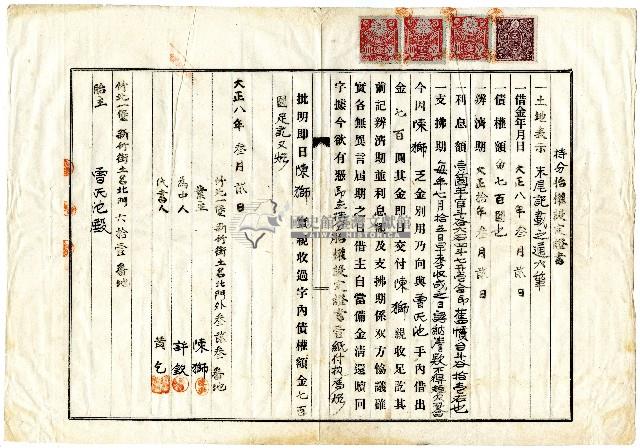 持分胎權設定證書
一土地表示 末尾記載之通六筆
一借金年月日 大正八年叁月貳日
債權額金七百圓也
一辨濟期 大正拾年叁月貳日
一利息額
一支拂期 每年七月拾五日
今因陳獅乏金別用乃向與曾氏池手內借出
金七百圓其金即日交付陳獅親收足訖其
前記辨濟期並利息額及支拂期係双方協議確
實各無異言屆期之日借主自當備金清還贖回
字據今欲有憑即立持分胎權設定證書壹紙付執為炤
批明即日陳獅實親收過字內債權額金七百
圓足訖又炤
大正八年叁月貳日
竹北一堡新竹街土名北門外叁貳叁番地
業主 陳獅
為中人 許釵
代書人 黃乞
竹北一堡新竹街土名北門六拾壹番地
胎主 曾氏池殿
國史館臺灣文獻館
TAIWAN HISTORICA